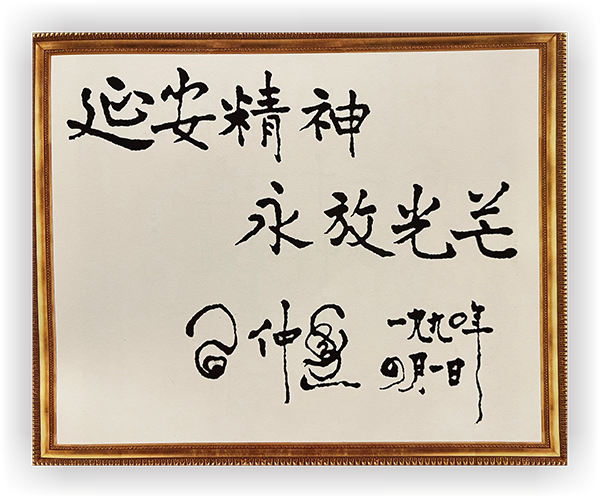 延安精神
永放光芒
習仲勳
一九九〇年
四月一日